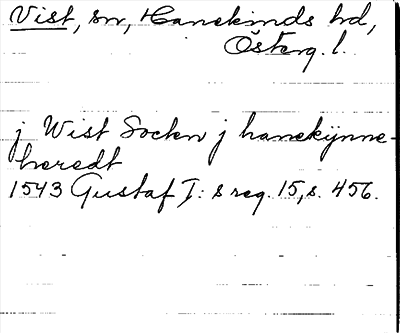 Vist, sn, Hanekinds hd,
Österg. l.
j Wist Socken j hanekynne-
heredt
1543 Gustaf I: s reg. 15, s. 456.